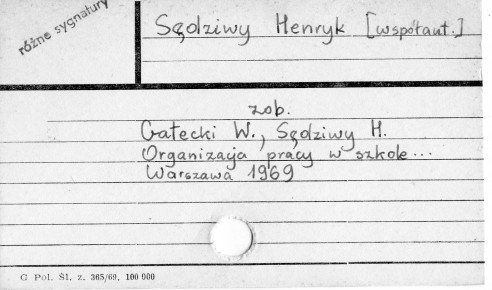 różne sygnatury
Sędziwy Henryk [współaut.]
zob.
Gałecki W., Sędziwy H.
Organizacja pracy w szkole...
Warszawa 1969
C Pol. Śl. z. 365/69, 100 000